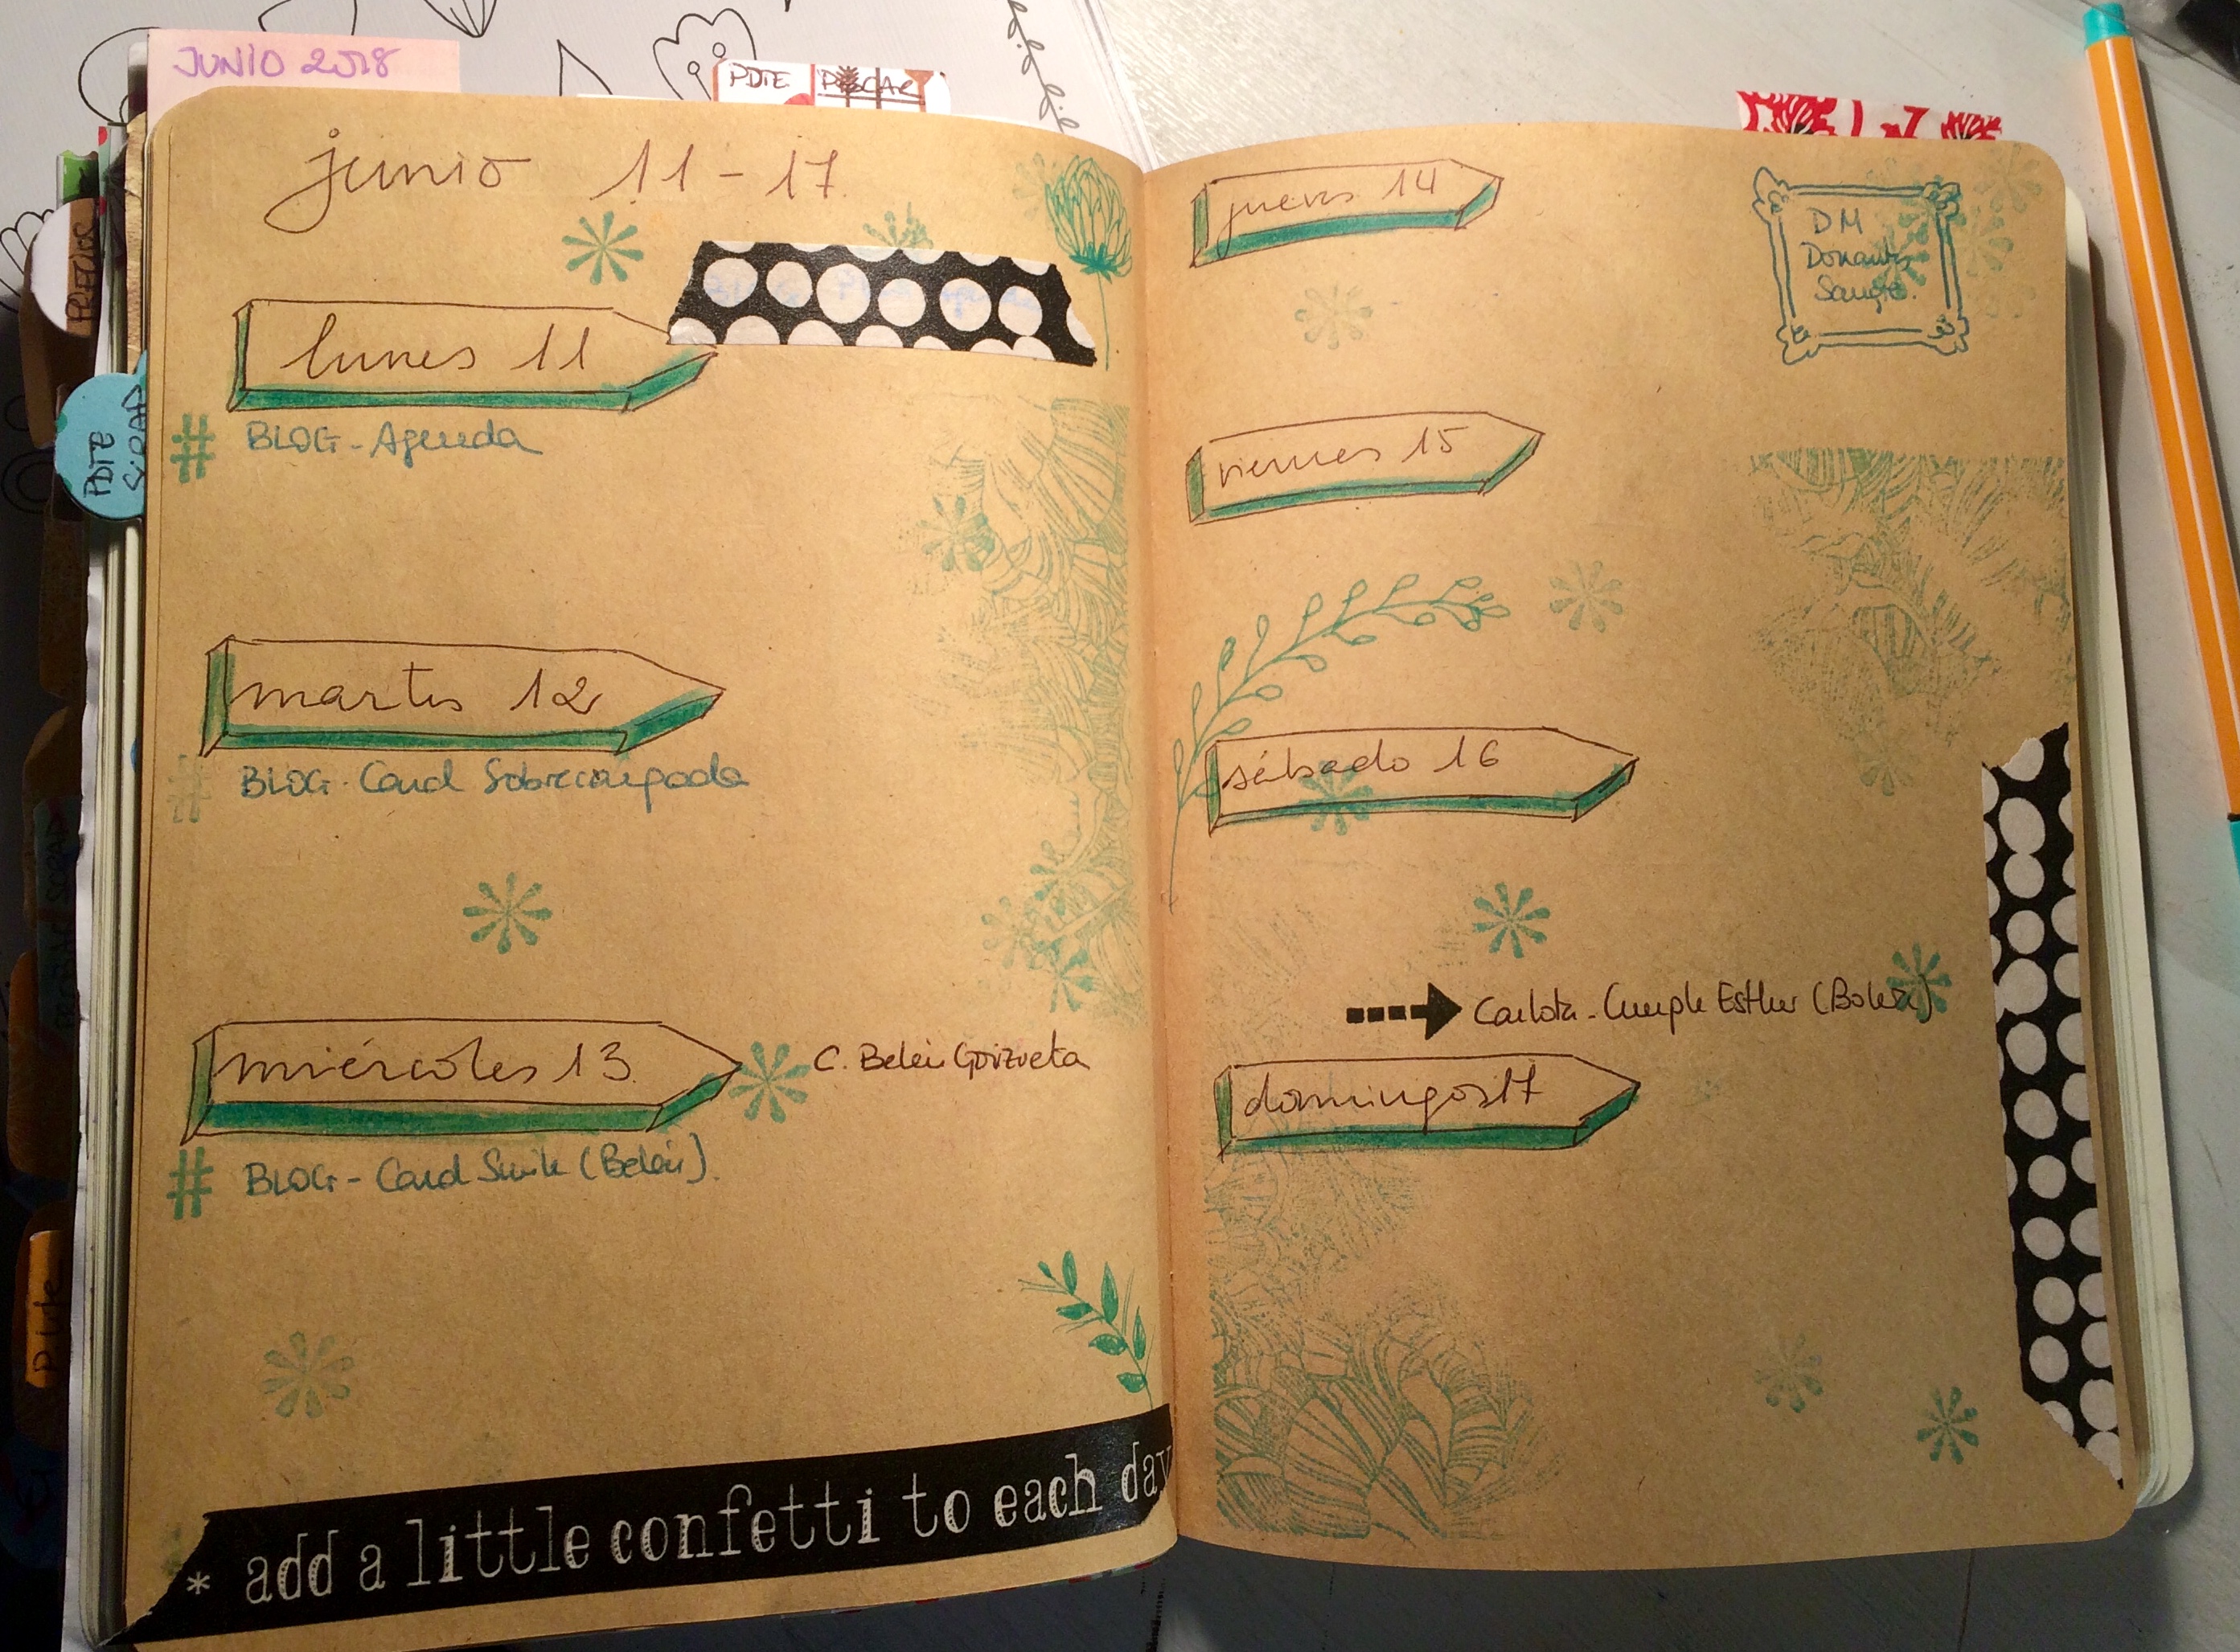 JUNIO 2018
PDTE
junio 11 - 17
lunes 11
# BLOG - Agenda
martes 12
# BLOG - Card Sobreestampada
miércoles 13
C. Belén Goizueta
# BLOG - Card Smile (Belén).
* add a little confetti to each day
jueves 14
DM
Donantes
Sangre.
viernes 15
sábado 16
Carlota - Cumple Esther (Bolera)
domingos 17
PDTE